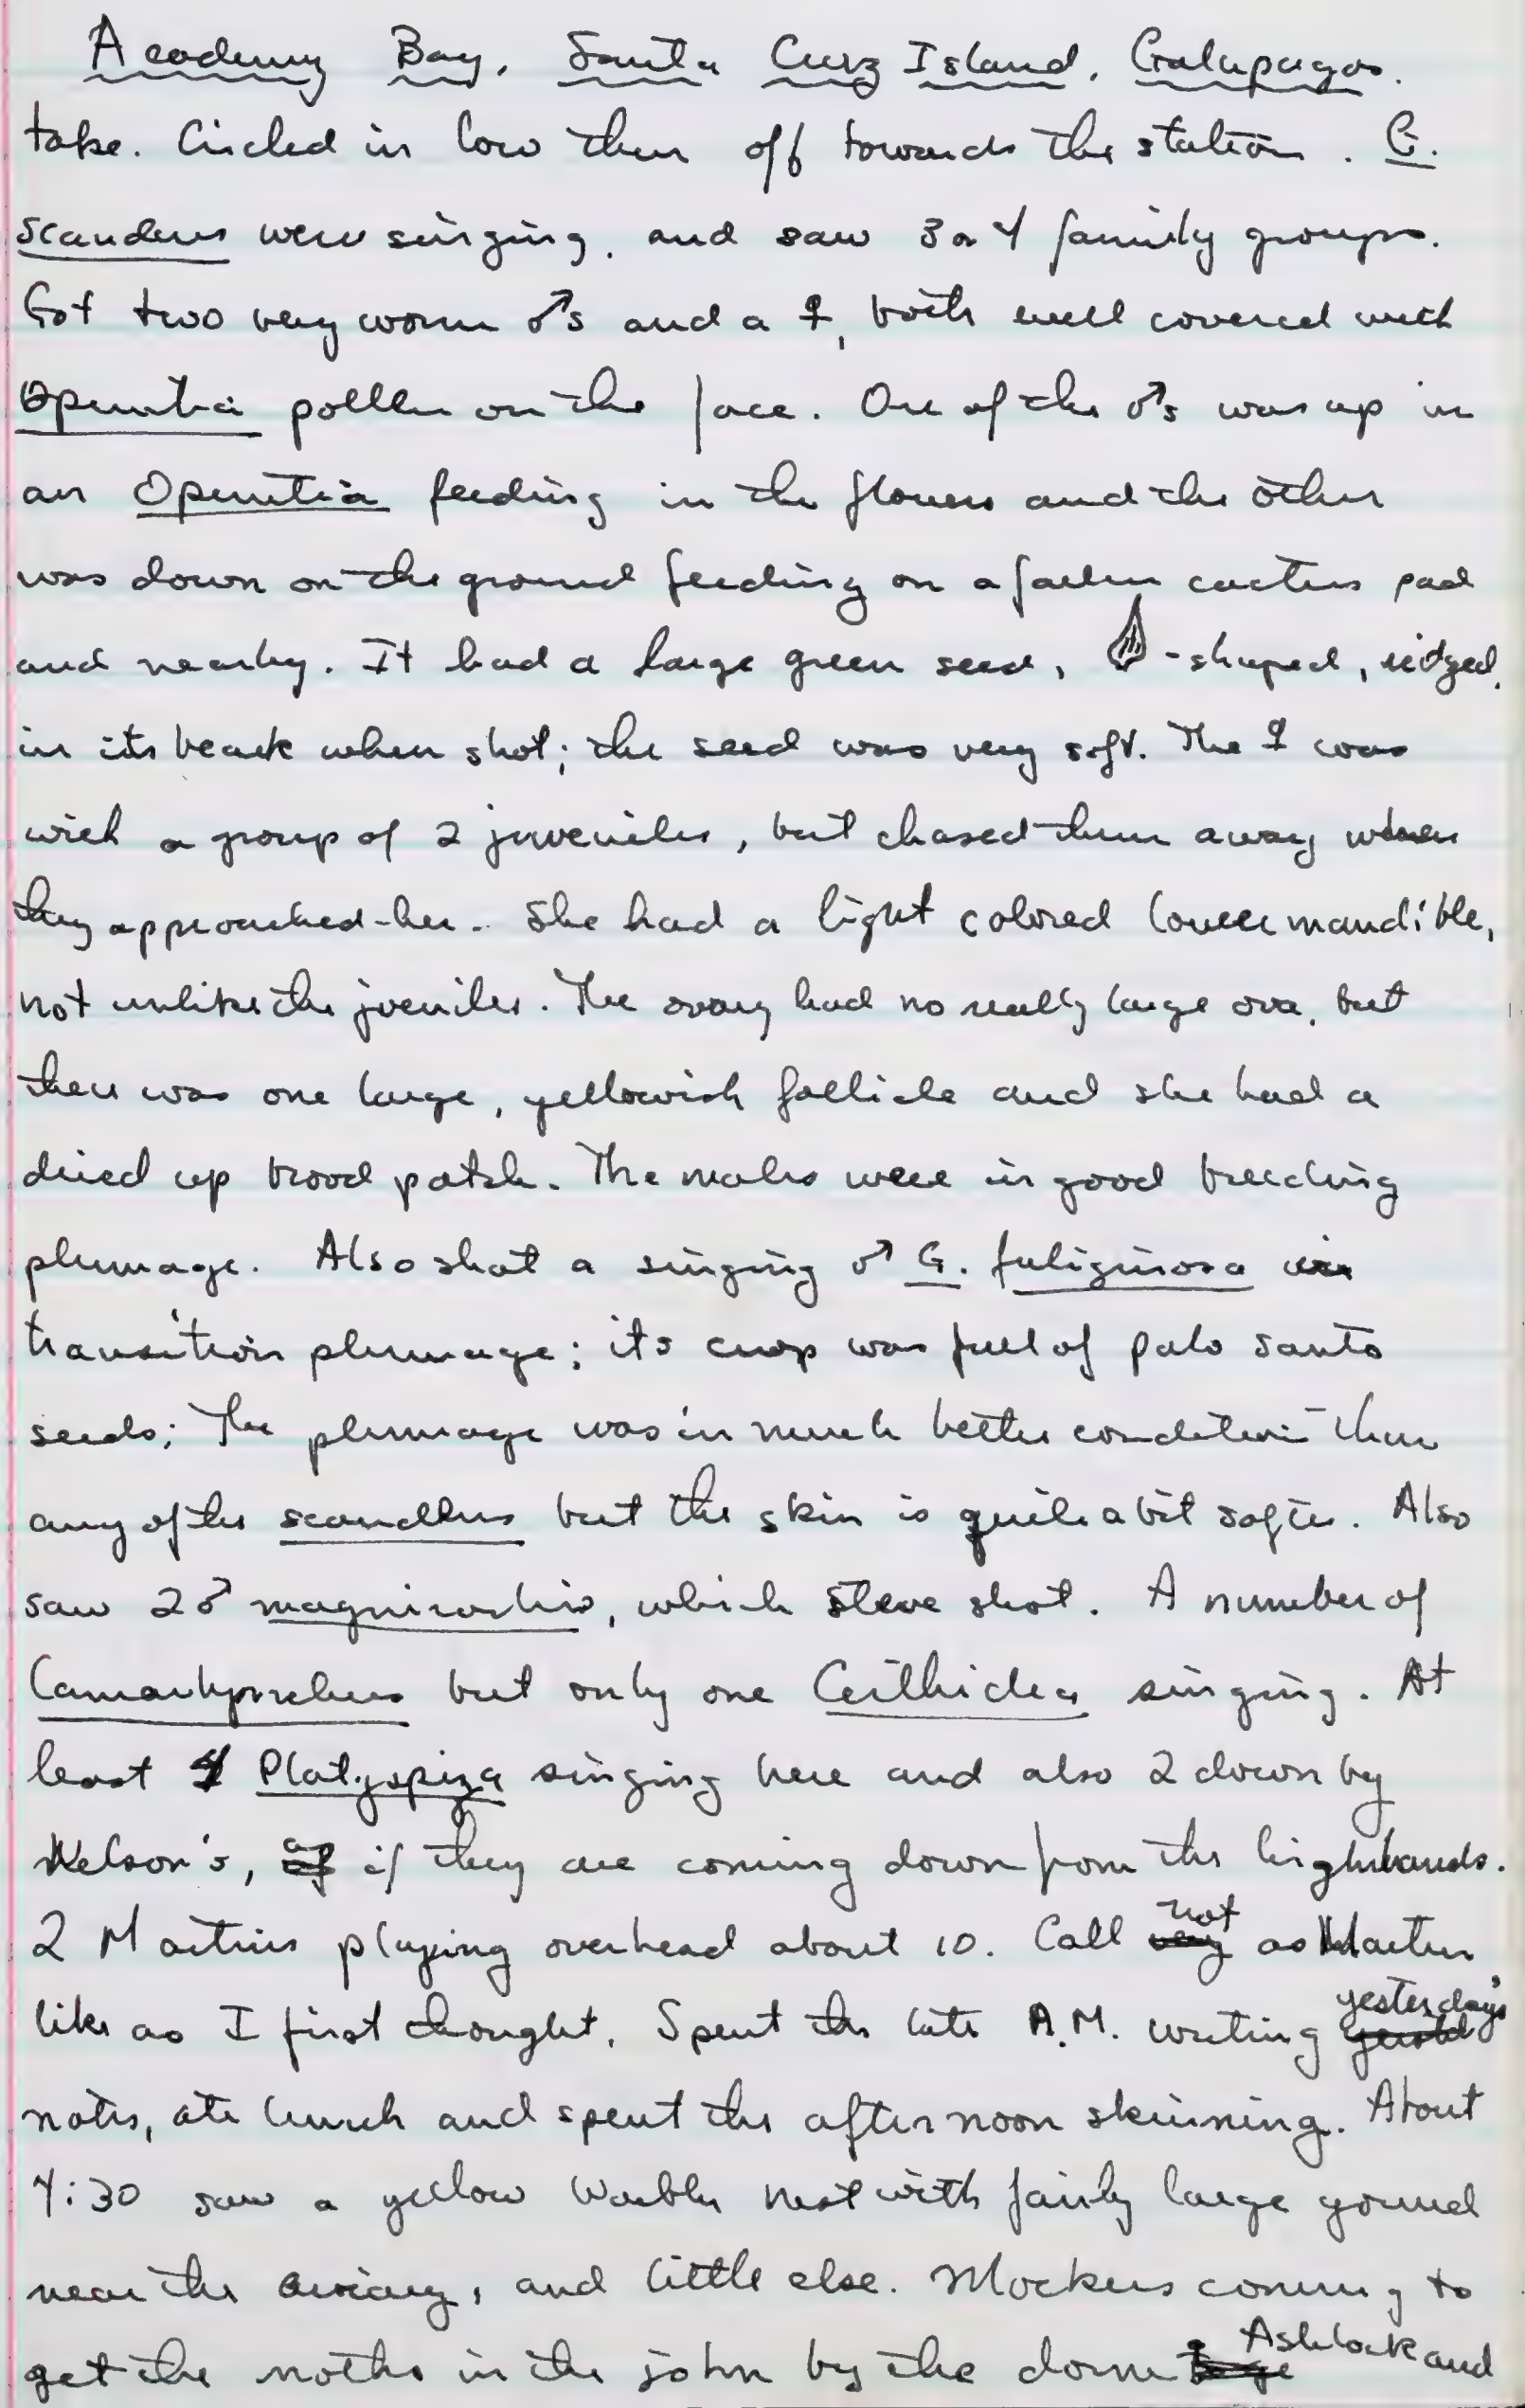 Academy Bay, Santa Cruz Island, Galapagos.
take. Circled in low then off towards the station. G.
scandens were singing, and saw 3 or 4 family groups.
Got two very worn ♂s and a ♀, both well covered with
Opuntia pollen on the face. One of the ♂s was up in
an Opuntia feeding in the flowers and the other
was down on the ground feeding on a fallen cactus pad
and nearby. It had a large green seed, -shaped, ridged,
in its beak when shot; the seed was very soft. The ♀ was
with a group of 2 juveniles, but chased them away when
they approached her. She had a light colored lower mandible,
not unlike the juveniles. The ovary had no really large ova, but
there was one large, yellowish follicle and she had a
dried up brood patch. The males were in good breeding
plumage. Also shot a singing ♂ G. fuliginosa in
transition plumage; its crop was full of palo santo
seeds; The plumage was in much better condition than
any of the scandens but the skin is quite a bit softer. Also
saw 2 ♂ magnirostris, which Steve shot. A number of
Camarhynchus but only one Certhidea singing. At
least 4 Platyspiza singing here and also 2 down by
Nelson's, as if they are coming down from the highlands.
2 Martins playing overhead about 10. Call not as Martin
like as I first thought. Spent the late A.M. writing yesterday's
notes, ate lunch and spent the afternoon skinning. About
4:30 saw a yellow Warbler nest with fairly large yound
near the aviary, and little else. Mockers coming to
get the moths in the john by the dorm. Ashlock and